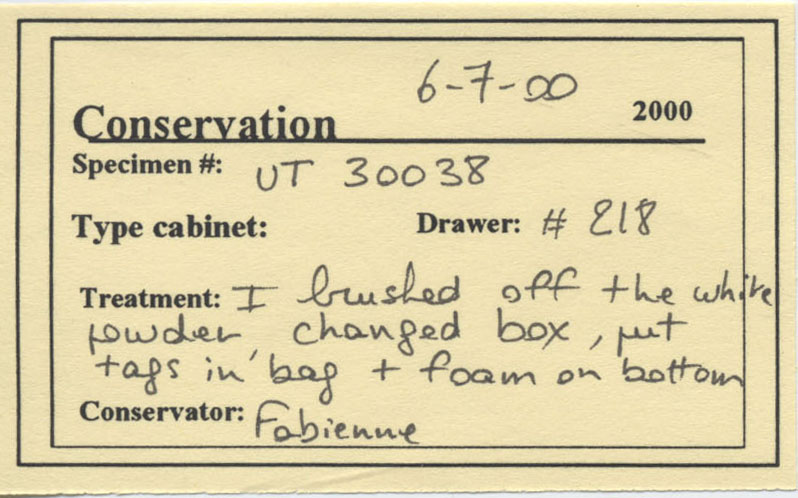 6-7-00
Conservation 2000
Specimen #: UT 30038
Type cabinet: Drawer: # 218
Treatment: I brushed off the white
powder changed box, put
tags in bag + foam on bottom
Conservator: Fabienne